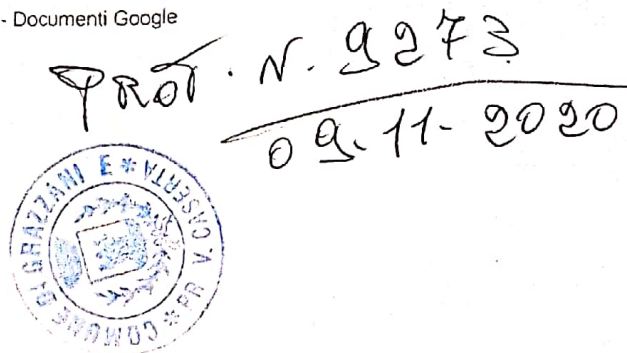 - Documenti Google
PROT. N. 9273
09-11-2020
COMUNE DI GRAZZANISE * PR. CASERTA *